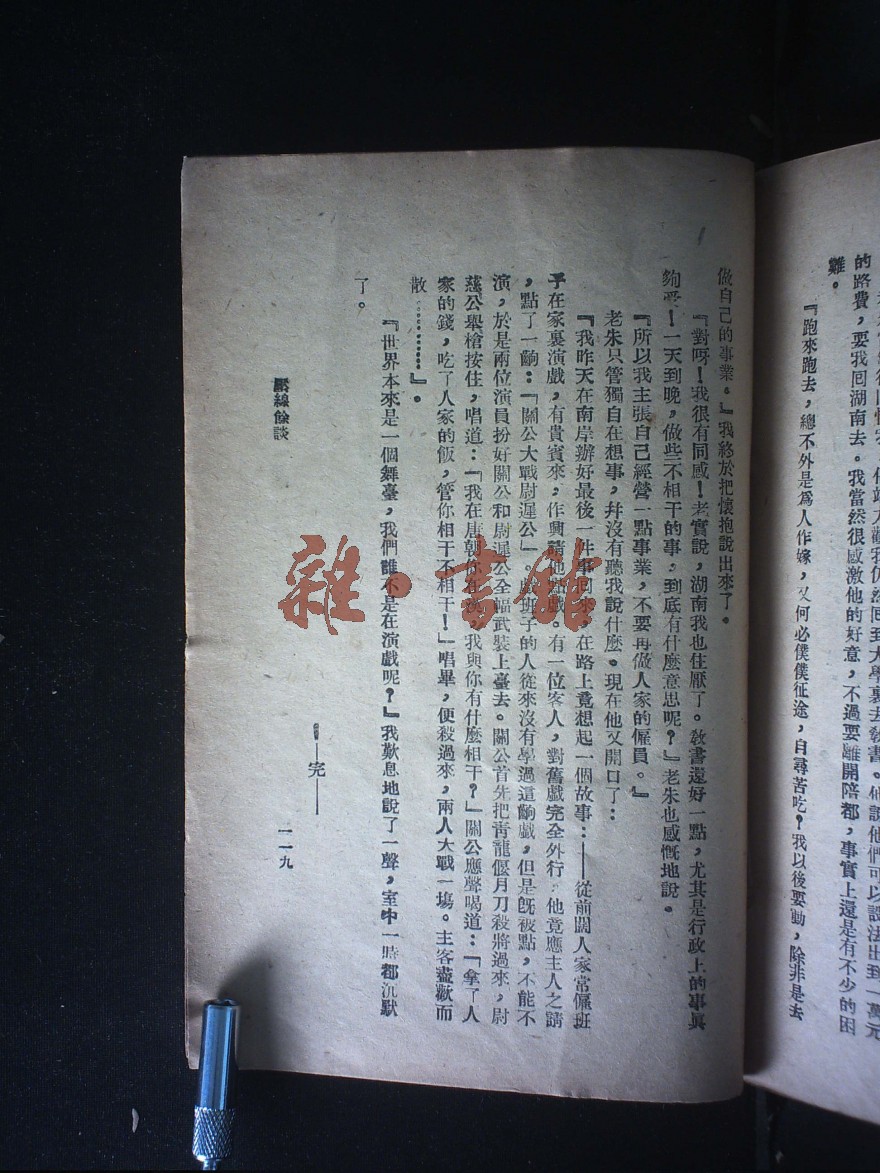 的路費，要我囘湖南去。我當然很感激他的好意，不過要離開陪都，事實上還是有不少的困
難。
『跑來跑去，總不外是爲人作嫁，又何必僕僕征途，自尋苦吃？我以後要動，除非是去
做自己的事業。』我終於把懷抱說出來了。
『對呀！我很有同感！老實說，湖南我也住厭了。敎書還好一點，尤其是行政上的事眞
夠受！一天到晚，做些不相干的事，到底有什麼意思呢？』老朱也感慨地說。
『所以我主張自己經營一點事業，不要再做人家的僱員。』
老朱只管獨自在想事，幷沒有聽我說什麼。現在他又開口了：
『我昨天在南岸辦好最後一件事囘來，在路上竟想起一個故事：——從前闊人家常僱班
子在家裏演戲，有貴賓來，作興請他點戲。有一位客人，對舊戲完全外行，他竟應主人之請
，點了一齣：「關公大戰尉遲公」。戲班子的人從來沒有學過這齣戲，但是旣被點，不能不
演，於是兩位演員扮好關公和尉遲公全幅武裝上臺去。關公首先把靑龍偃月刀殺將過來，尉
遲公舉槍按住，唱道：「我在唐朝你在漢，我與你有什麼相干？」關公應聲喝道：「拿了人
家的錢，吃了人家的飯，管你相干不相干！」唱畢，便殺過來，兩人大戰一場。主客盡歡而
散…………』。
『世界本來是一個舞臺，我們誰不是在演戲呢？』我歎息地說了一聲，室中一時都沉默
了。
——完——
線餘談
一一九
雜·書館